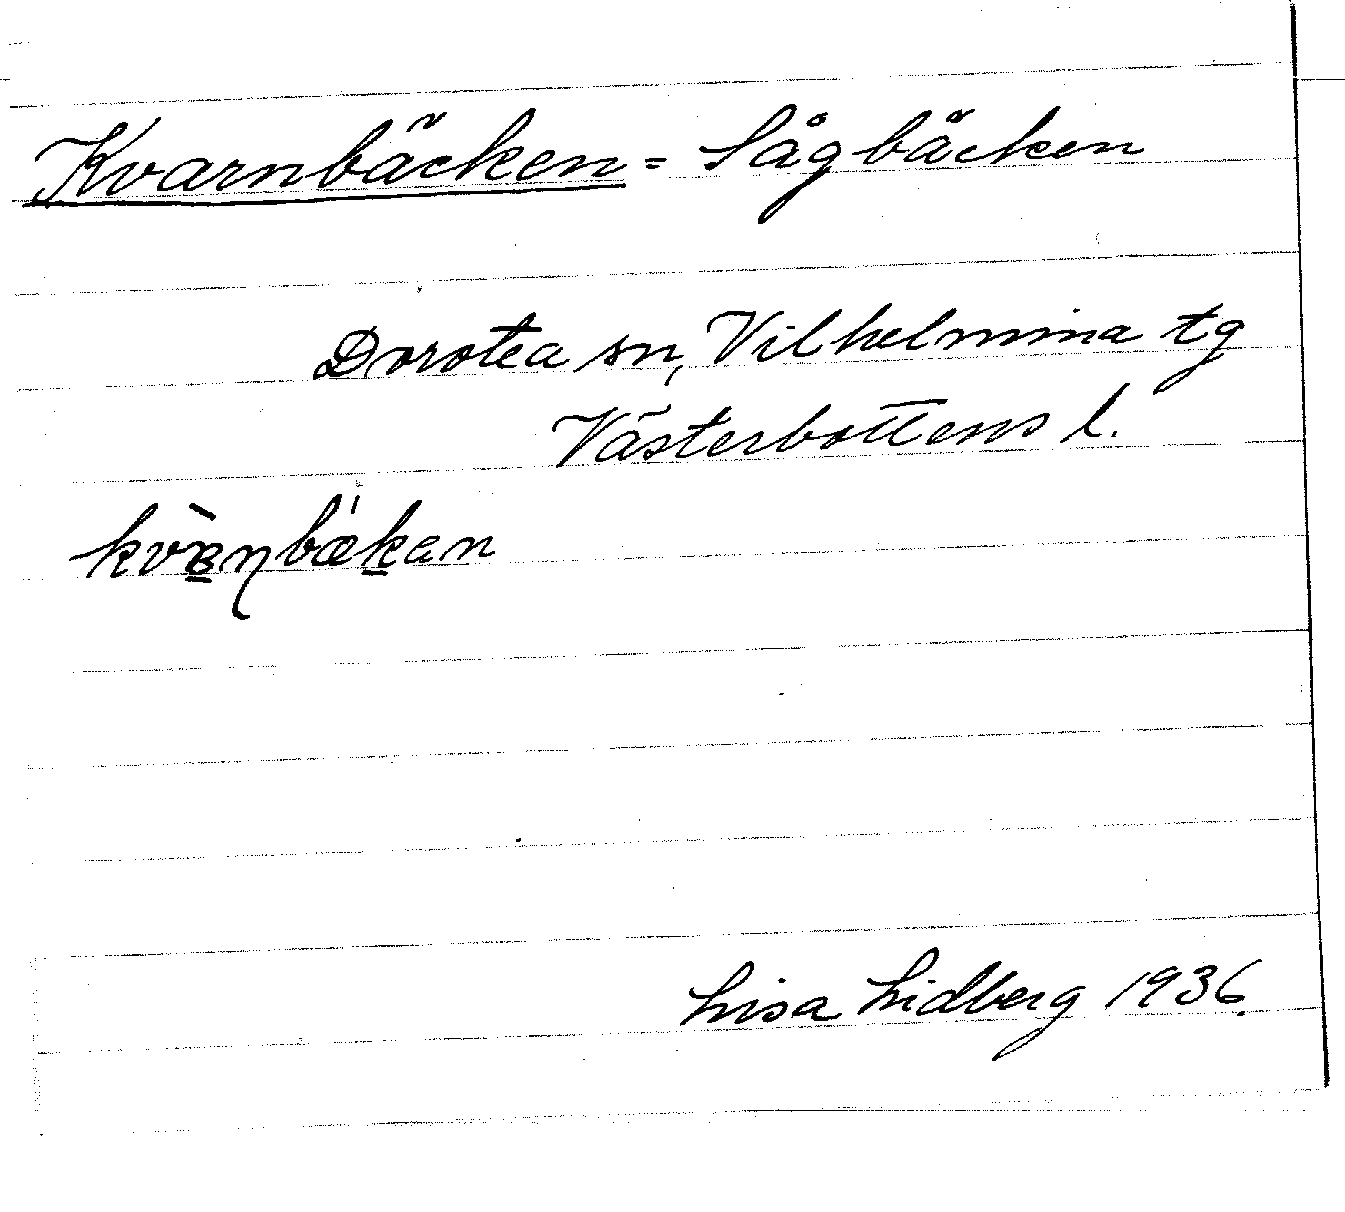 Kvarnbäcken = Sågbäcken
Dorotea sn, Vilhelmina tg
Västerbottens l.
kvæ̀ṇbǽkan
Lisa Lidberg 1936.